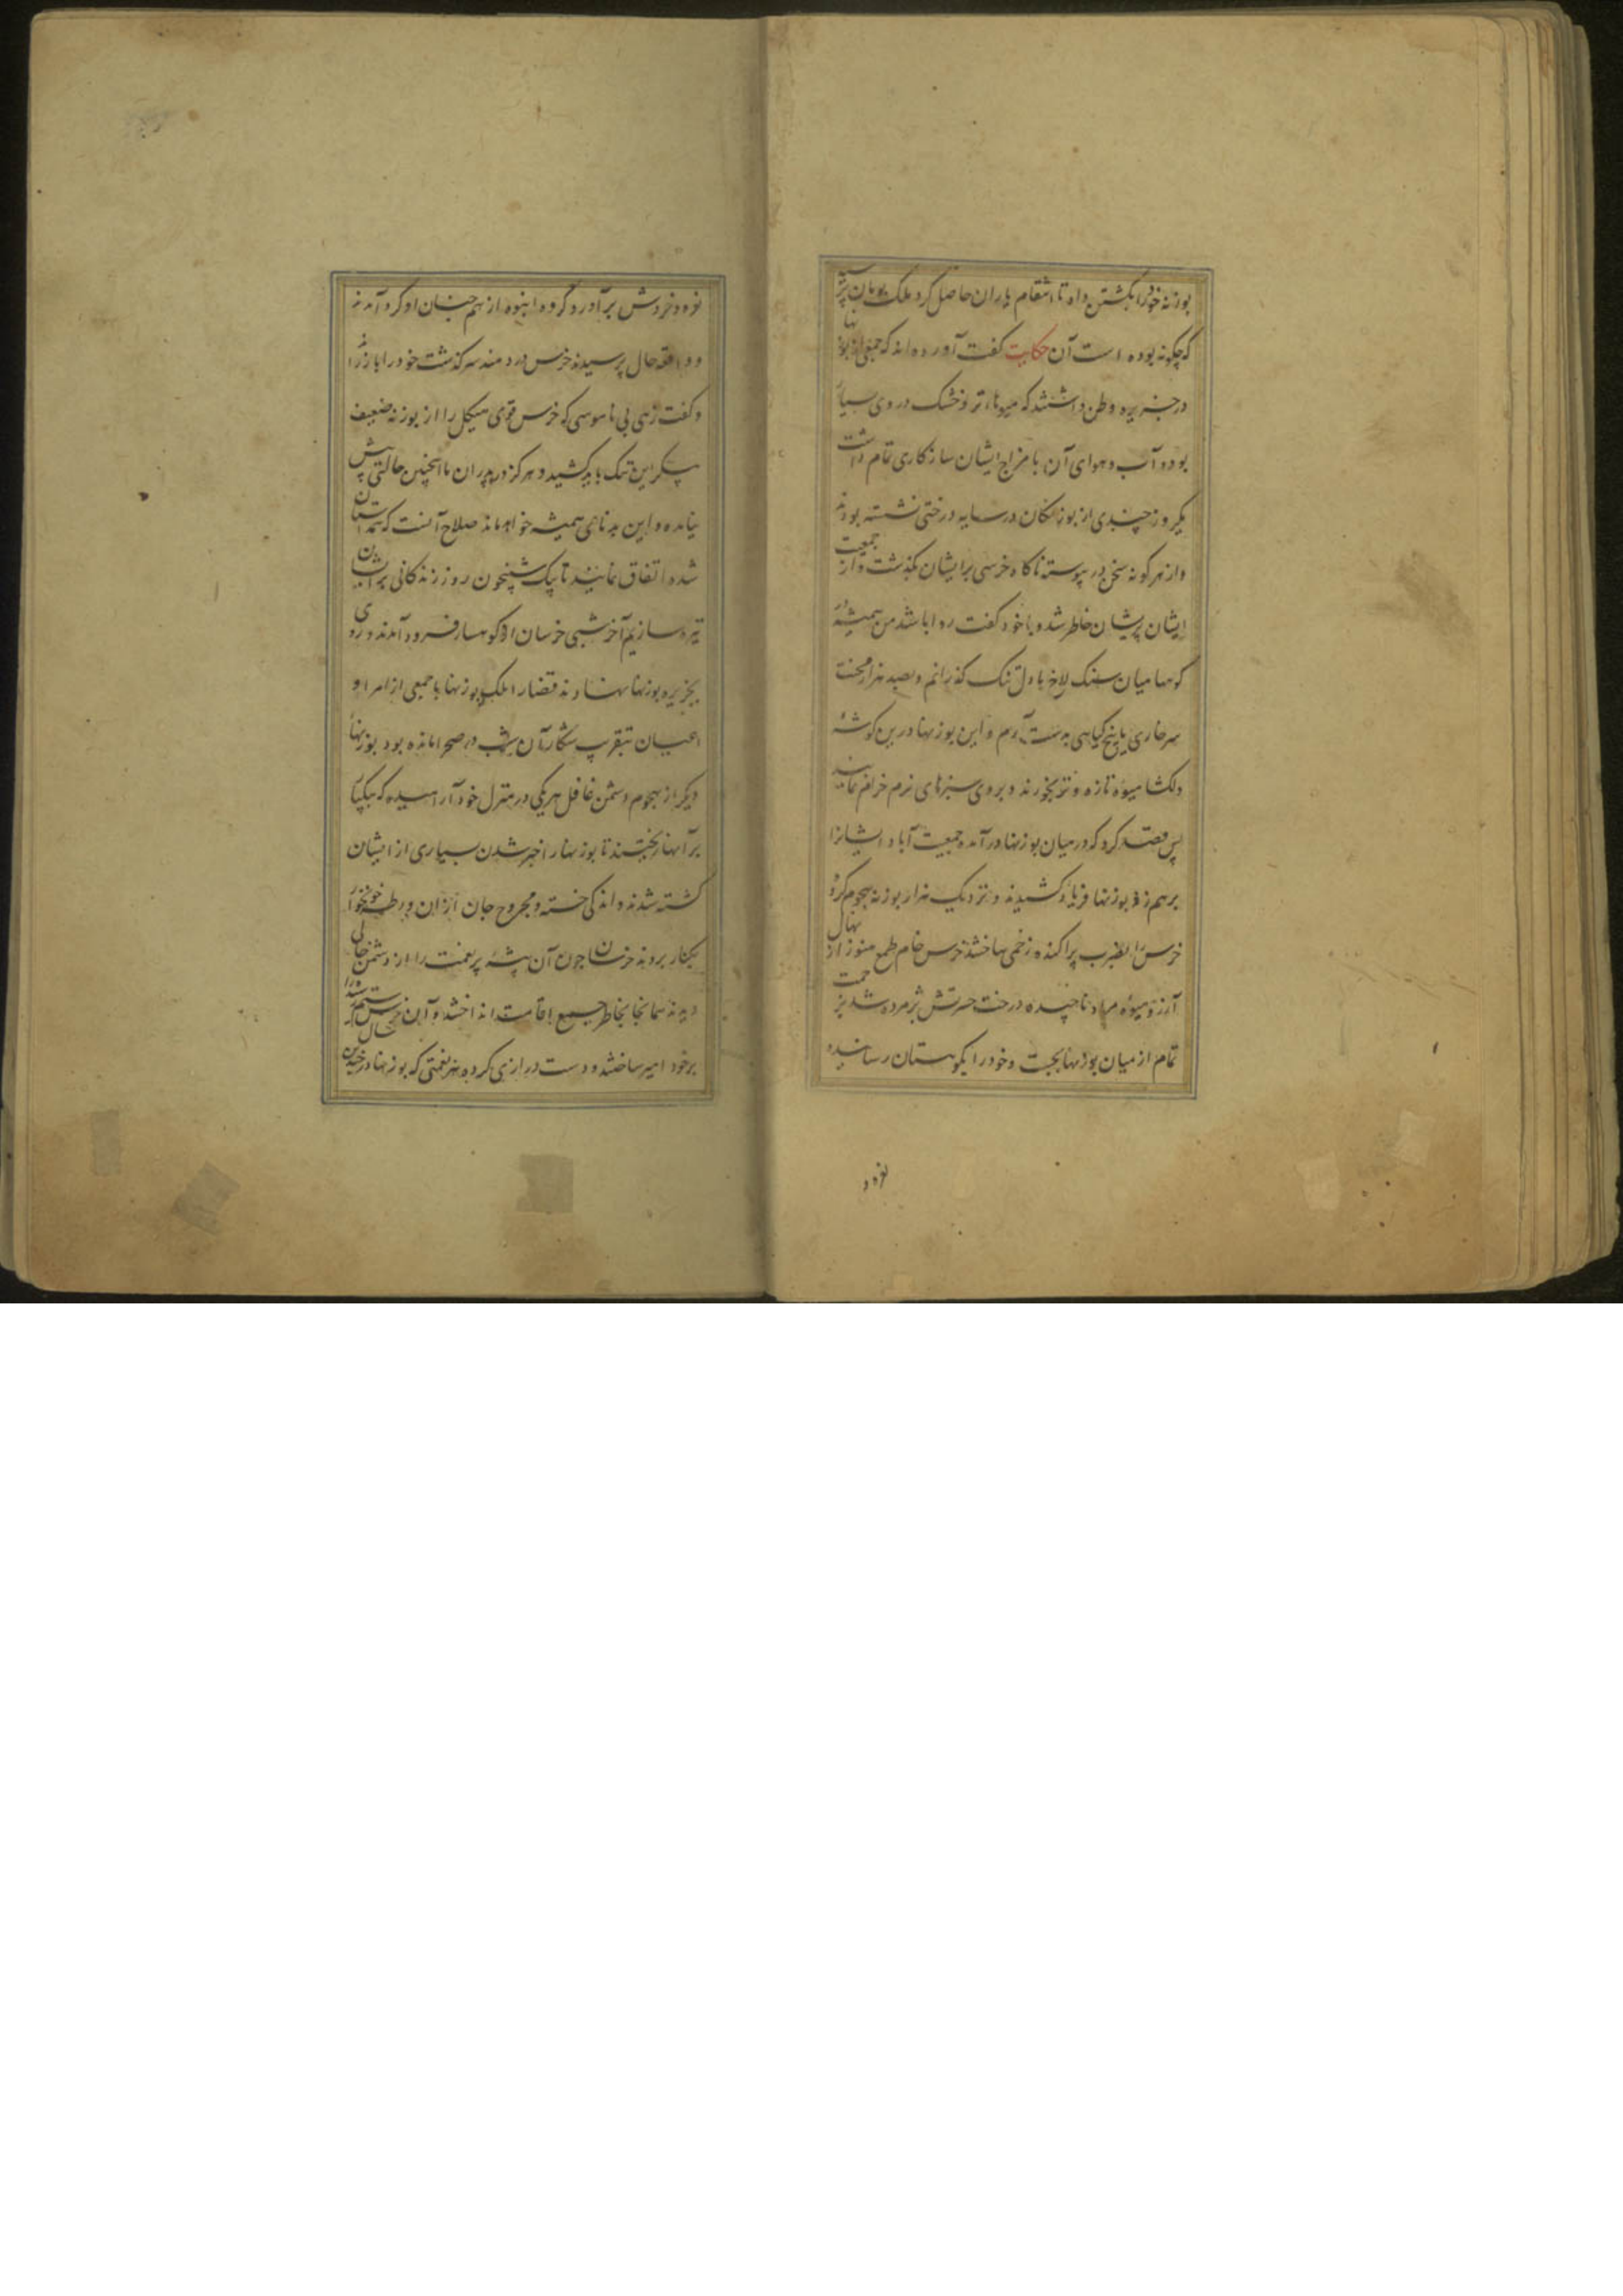 بوزنه خود را بکشتن داد تا انتقام یاران حاصل کرد ملک بومان پرسید
که چگونه بوده است آن حکایت گفت آورده اند که جمعی از بوزنها
در جزیره وطن داشتند که میوهاء تر و خشک در وی بسیار
بود و آب و هوای آن با مزاج ایشان سازکاری تمام داشت
یکروز چندی از بوزنکان در سایه درختی نشسته بودند
و از هر کونه سخن در پیوسته ناکاه خرسی بر ایشان بکذشت و از جمعیت
ایشان پریشان خاطر شد و با خود کفت روا باشد من همیشه در
کوهها میان سنک لاخ با دل تنک کذرانم و بصد هزار محنت
سر خاری یا بیخ کیاهی بدست آرم و این بوزنها درین کوشهٔ
دلکشا میوهٔ تازه و تر بخورند و بر روی سبزهای نرم خرام نمایند
پس قصد کرد که در میان بوزنها در آمده جمعیت آباد ایشانرا
برهم زند بوزنها فریاد کشیدند و نزدیک هزار بوزنه هجوم کرده
خرس را بضرب پراکنده زخمی ساختند خرس خام طمع هنوز از نهال
آرزو میوهٔ مراد ناچیده درخت حسرتش پژمرده شد بزحمت
تمام از میان بوزنها بجست و خود را بکوهستان رسانیده
نعره و
نعره و خروش برآورد کروه انبوه از هم جنسان او کرد آمدند
و واقعه حال پرسیدند خرس دردمند سرکذشت خود را باز راند
و کفت زهی بی ناموسی که خرس قوی هیکل را از بوزنه ضعیف
پیکر این ننک باید کشید و هرکز در پدران ما اینچنین حالتی پیش
نیامده و این بدنامی همیشه خواهد ماند صلاح آنست که همداستان
شده اتفاق نمائید تا بیک شبیخون روز زندکانی بر ایشان
تیره سازیم آخر شبی خرسان از کوهسار فرود آمدند و روی
بجزیره بوزنها نهادند قضا را ملک بوزنها با جمعی از امرا و
اعیان بتقریب شکار آن شب در صحرا مانده بود بوزنهاء
دیکر از هجوم دشمن غافل هر یکی در منزل خود آرامیده که بیکبار
بر آنها ریختند تا بوزنها را خبر شدن بسیاری از ایشان
کشته شدند و اندکی خسته و مجروح جان از آن ورطه خونخوار
بکنار بردند خرسان چون آن بیشهٔ پر نعمت را از دشمن خالی
دیدند همانجا بخاطر جمع اقامت انداختند و آن خرس ستم رسیده را
بر خود امیر ساختند و دست درازی کرده هر نعمتی که بوزنها در چندین سال